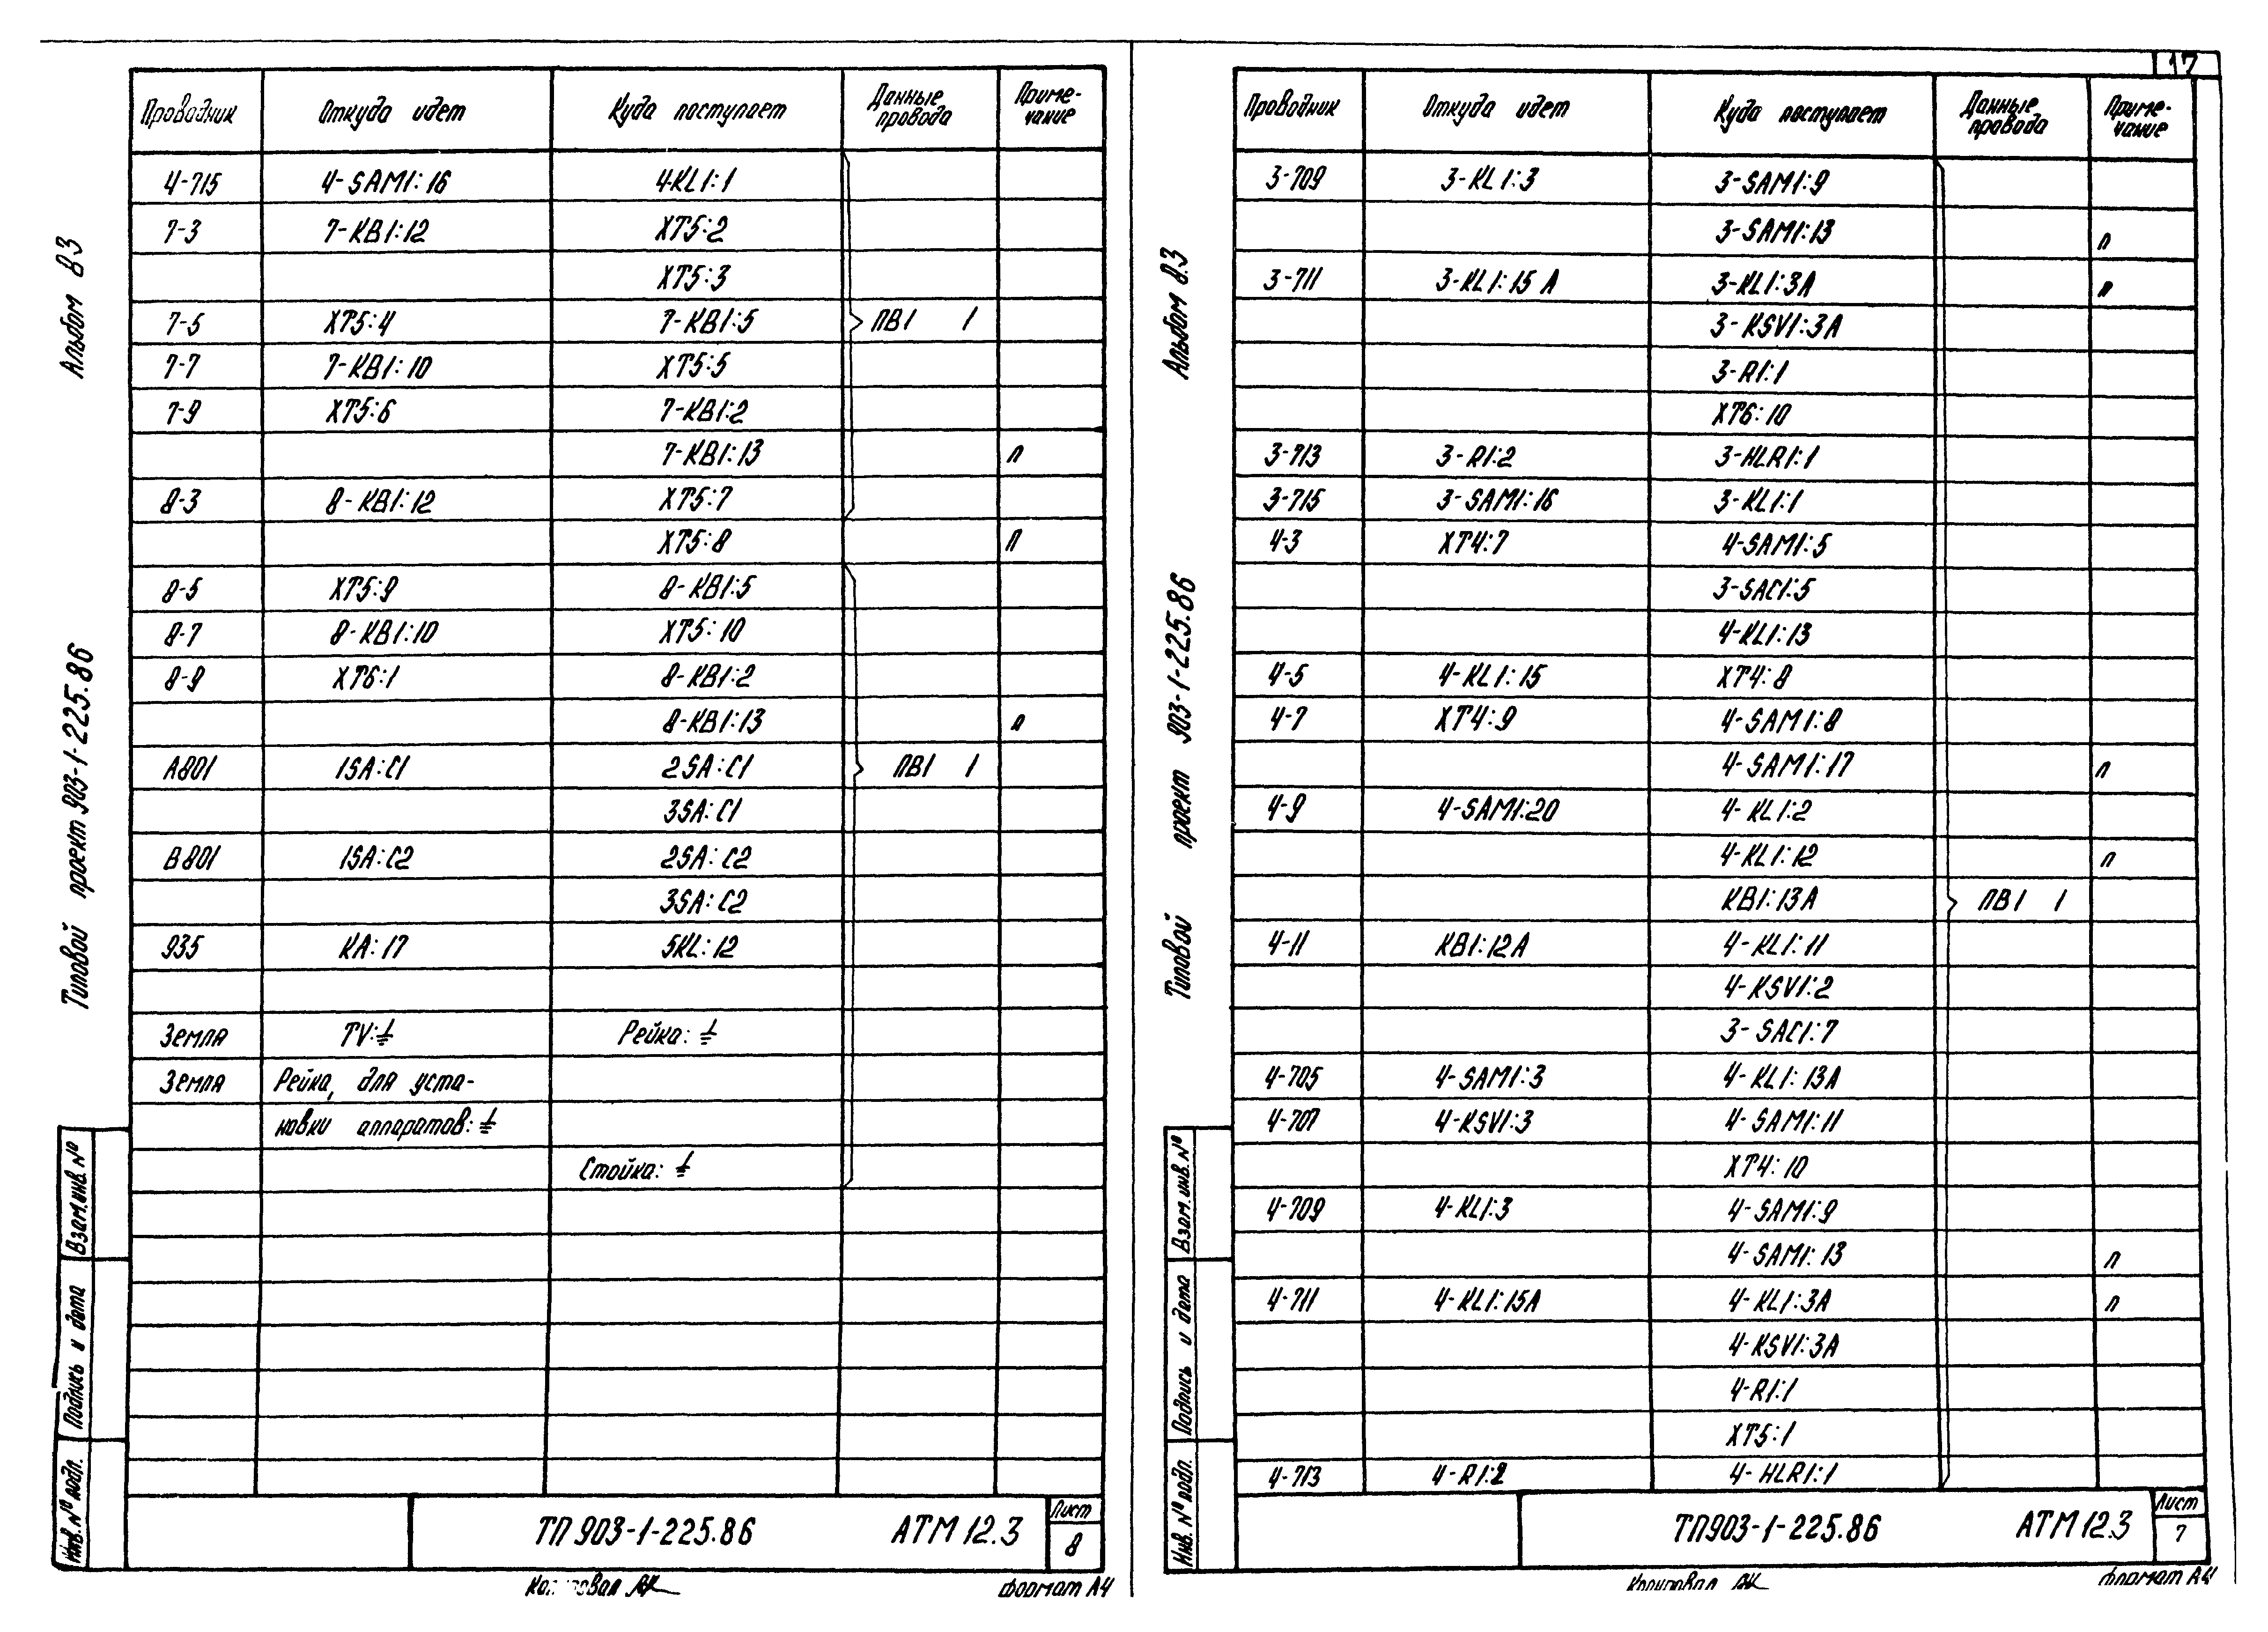 17
Проводник Откуда идет Куда поступает Данные провода Приме-чание
4-715 4-SAM1:16 4-KL1:1
7-3 7-KB1:12 XT5:2
XT5:3
7-5 XT5:4 7-KB1:5 ПВ1 1
7-7 7-KB1:10 XT5:5
7-9 XT5:6 7-KB1:2
7-KB1:13 п
8-3 8-KB1:12 XT5:7
XT5:8 п
8-5 XT5:9 8-KB1:5
8-7 8-KB1:10 XT5:10
8-9 XT6:1 8-KB1:2
8-KB1:13 п
A801 1SA:C1 2SA:C1 ПВ1 1
3SA:C1
B801 1SA:C2 2SA:C2
3SA:C2
935 KA:17 5KL:12
Земля TV:⏚ Рейка:⏚
Земля Рейка, для уста-
новки аппаратов:⏚
Стойка:⏚
ТП 903-1-225.86 АТМ 12.3 Лист 8
Формат А4
Альбом 8.3
Типовой проект 903-1-225.86
Взам.инв.№
Подпись и дата
Инв.№ подл.
Проводник Откуда идет Куда поступает Данные провода Приме-чание
3-709 3-KL1:3 3-SAM1:9
3-SAM1:13 п
3-711 3-KL1:15A 3-KL1:3A п
3-KSV1:3A
3-R1:1
XT6:10
3-713 3-R1:2 3-HLR1:1
3-715 3-SAM1:16 3-KL1:1
4-3 XT4:7 4-SAM1:5
3-SAC1:5
4-KL1:13
4-5 4-KL1:15 XT4:8
4-7 XT4:9 4-SAM1:8
4-SAM1:17 п
4-9 4-SAM1:20 4-KL1:2
4-KL1:12 п
KB1:13A ПВ1 1
4-11 KB1:12A 4-KL1:11
4-KSV1:2
3-SAC1:7
4-705 4-SAM1:3 4-KL1:13A
4-707 4-KSV1:3 4-SAM1:11
XT4:10
4-709 4-KL1:3 4-SAM1:9
4-SAM1:13 п
4-711 4-KL1:15A 4-KL1:3A п
4-KSV1:3A
4-R1:1
XT5:1
4-713 4-R1:2 4-HLR1:1
ТП903-1-225.86 АТМ 12.3 Лист 7
Копировал
Формат А4
Альбом 8.3
Типовой проект 903-1-225.86
Взам.инв.№
Подпись и дата
Инв.№ подл.